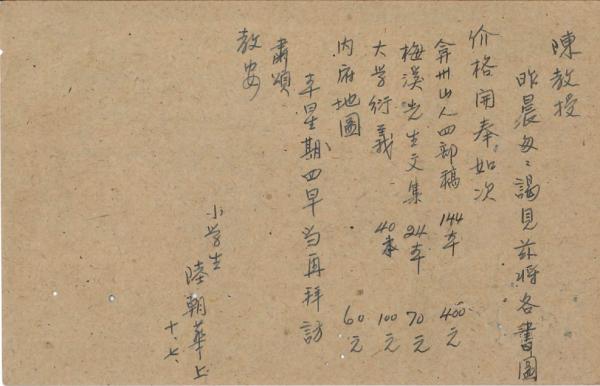 陳教授
昨晨匆々謁見茲將各書圖
价格開奉如次
弇州山人四部稿 144本 400元
梅溪先生文集 24本 70元
大学衍義 40本 100元
内府地圖 60元
本星期四早当再拜訪
肅頌
教安
小学生
陸朝華上
十.七.